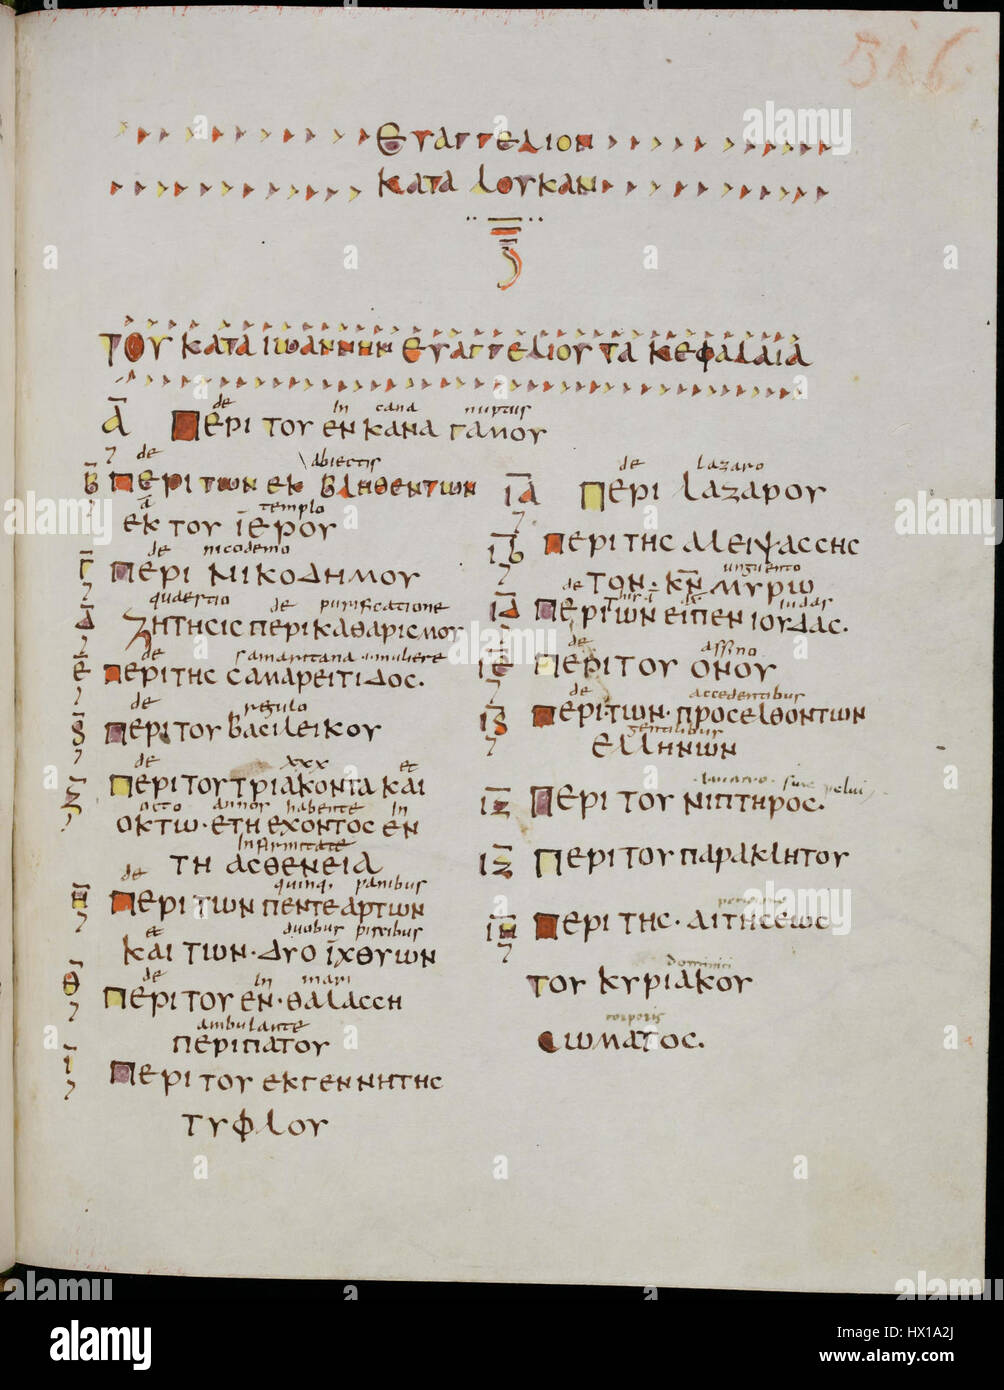 316.
ΕΥΑΓΓΕΛΙΟΝ
ΚΑΤΑ ΛΟΥΚΑΝ
ΤΟΥ ΚΑΤΑ ΙΩΑΝΝΗΝ ΕΥΑΓΓΕΛΙΟΥ ΤΑ ΚΕΦΑΛΑΙΑ
de in cana nuptus
Α ΠΕΡΙ ΤΟΥ ΕΝ ΚΑΝΑ ΓΑΜΟΥ
de abiectis
Β ΠΕΡΙ ΤΩΝ ΕΚ ΒΛΗΘΕΝΤΩΝ
a templo
ΕΚ ΤΟΥ ΙΕΡΟΥ
de nicodemo
Γ ΠΕΡΙ ΝΙΚΟΔΗΜΟΥ
quaestio de purificatione
Δ ΖΗΤΗΣΙΣ ΠΕΡΙ ΚΑΘΑΡΙΣΜΟΥ
de samaritana muliere
Ε ΠΕΡΙ ΤΗΣ ΣΑΜΑΡΕΙΤΙΔΟΣ.
de regulo
Ϛ ΠΕΡΙ ΤΟΥ ΒΑΣΙΛΕΙΚΟΥ
de xxx et
Ζ ΠΕΡΙ ΤΟΥ ΤΡΙΑΚΟΝΤΑ ΚΑΙ
octo annos habente in
ΟΚΤΩ· ΕΤΗ ΕΧΟΝΤΟΣ ΕΝ
infirmitate
ΤΗ ΑΣΘΕΝΕΙΑ
de quinq, panibus
Η ΠΕΡΙ ΤΩΝ ΠΕΝΤΕ ΑΡΤΩΝ
et duobus piscibus
ΚΑΙ ΤΩΝ· ΔΥΟ ΙΧΘΥΩΝ
de in mari
Θ ΠΕΡΙ ΤΟΥ ΕΝ· ΘΑΛΑΣΣΗ
ambulante
ΠΕΡΙΠΑΤΟΥ
Ι ΠΕΡΙ ΤΟΥ ΕΚ ΓΕΝΝΗΤΗΣ
ΤΥΦΛΟΥ
de lazaro
ΙΑ ΠΕΡΙ ΛΑΖΑΡΟΥ
ΙΒ ΠΕΡΙ ΤΗΣ ΑΛΕΙΨΑΣΣΗΣ
unguento
ΤΟΝ· ΚΝ ΜΥΡΩ
de iudas
ΙΔ ΠΕΡΙ ΤΩΝ ΕΙΠΕΝ ΙΟΥΔΑΣ.
de assino
ΙΕ ΠΕΡΙ ΤΟΥ ΟΝΟΥ
de accedentibus
ΙϚ ΠΕΡΙ ΤΩΝ· ΠΡΟΣΕΛΘΟΝΤΩΝ
gentilibus
ΕΛΛΗΝΩΝ
sive pelui
ΙΖ ΠΕΡΙ ΤΟΥ ΝΙΠΤΗΡΟΣ.
ΙΖ ΠΕΡΙ ΤΟΥ ΠΑΡΑΚΛΗΤΟΥ
ΙΗ ΠΕΡΙ ΤΗΣ· ΑΙΤΗΣΕΩΣ
dominici
ΤΟΥ ΚΥΡΙΑΚΟΥ
corporis
ΣΩΜΑΤΟΣ.
alamy
Image ID: HX1A2J
www.alamy.com